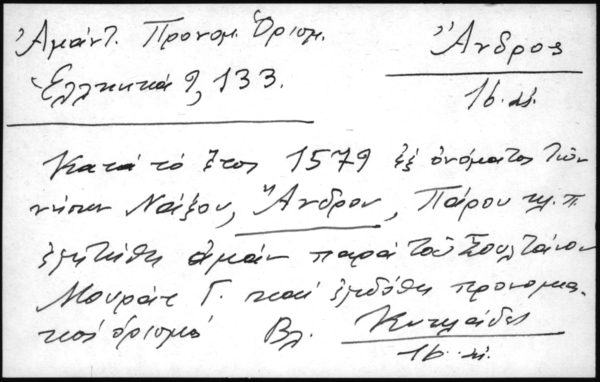 Ἀμάντ. Προνομ. Ὁρισμ.
Ἑλληνικά 9, 133.
Ἄνδρος
16. αἰ.
Κατά τό ἔτος 1579 ἐξ ὀνόματος τῶν
νήσων Νάξου, Ἄνδρου, Πάρου κλ.π.
ἐζητήθη ἀμάν παρά τοῦ Σουλτάνου
Μουράτ Γ. καί ἐξεδόθη προνομια-
κός ὁρισμός Βλ. Κυκλάδες
16. αἰ.